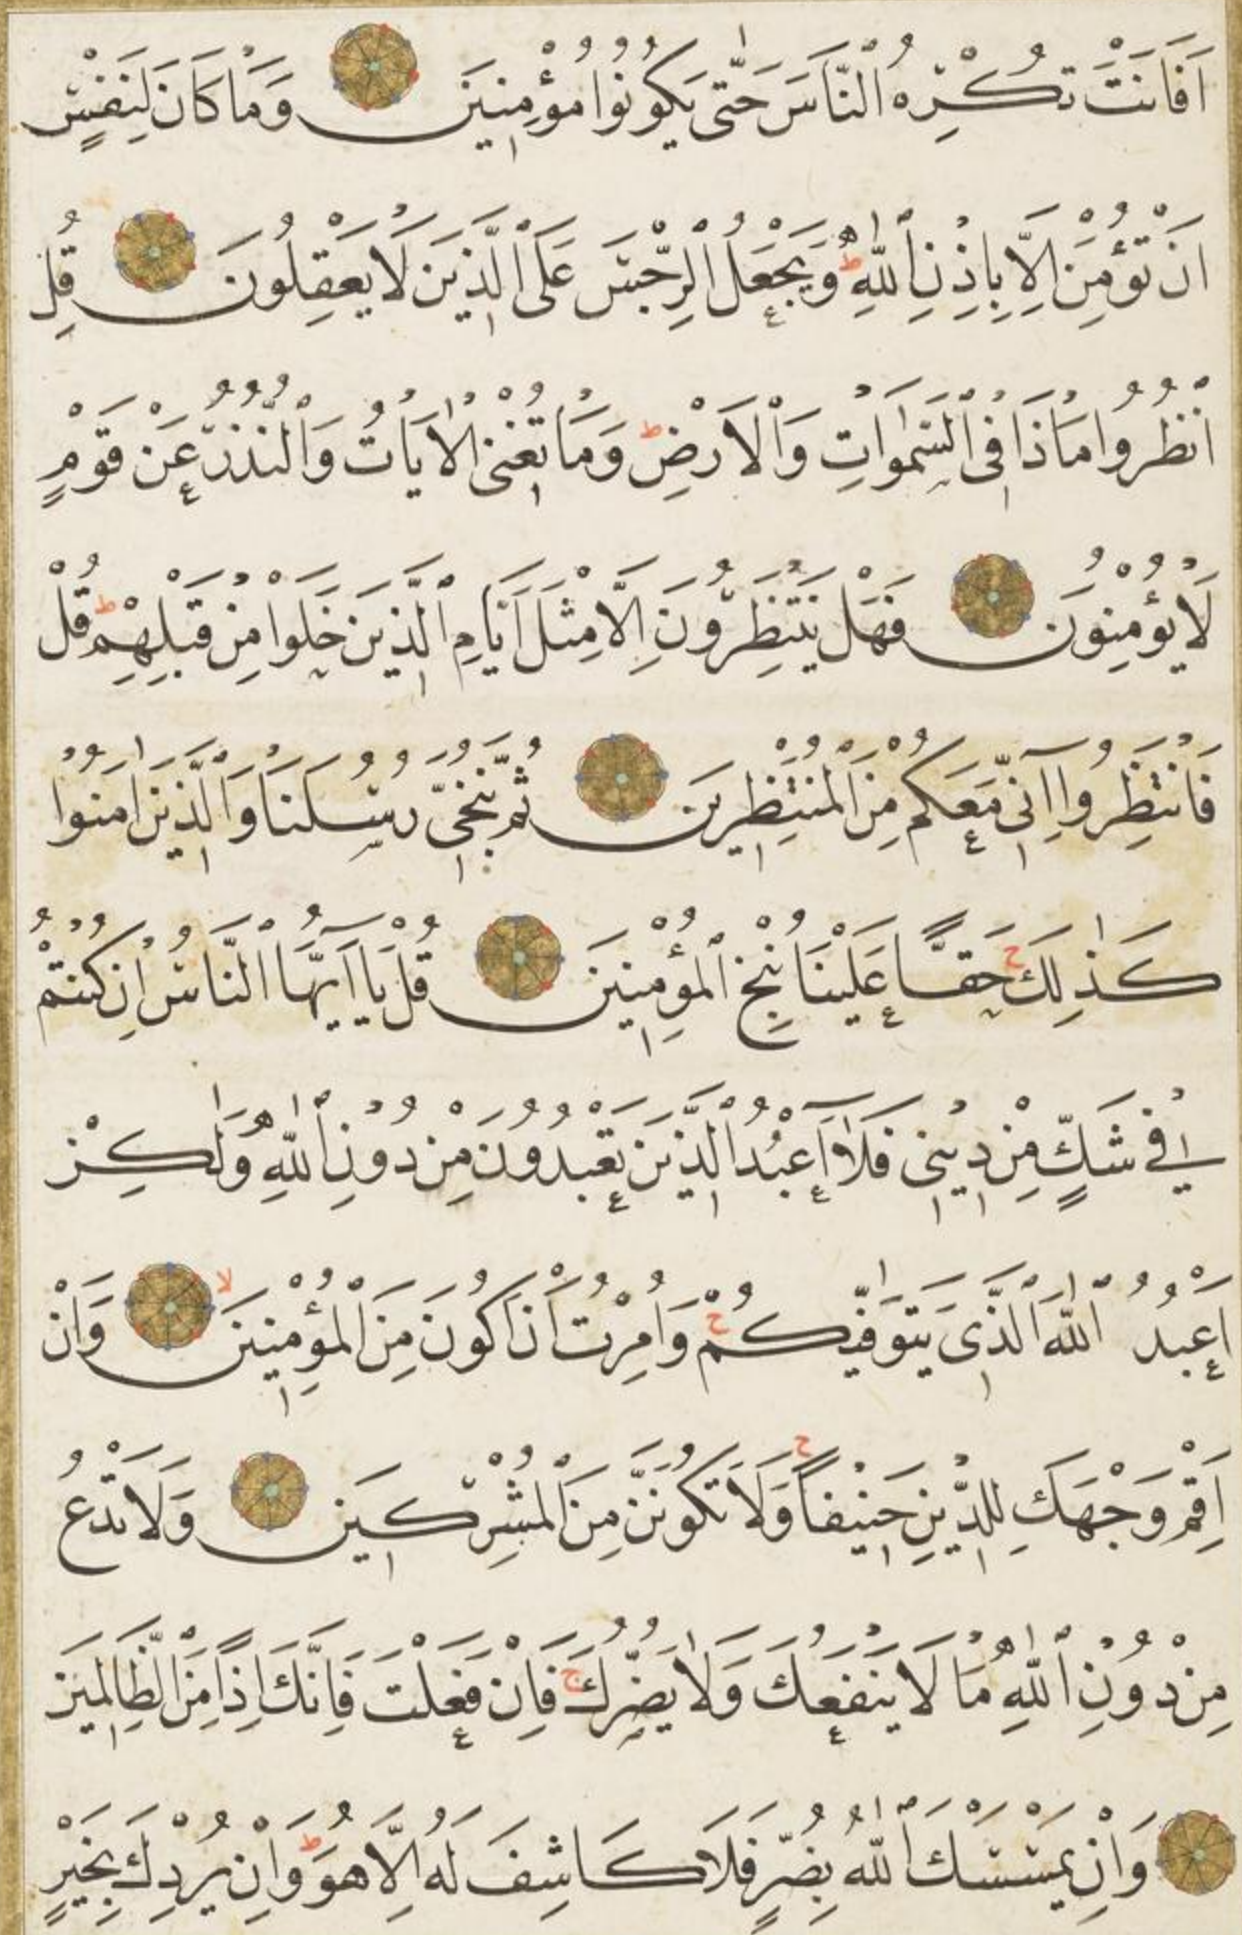 اَفَاَنْتَ تُكْرِهُ ٱلنَّاسَ حَتّٰى يَكُونُوا مُؤْمِنِينَ وَمَا كَانَ لِنَفْسٍ
اَنْ تُؤْمِنَ اِلَّا بِاِذْنِ ٱللّٰهِ ط وَيَجْعَلُ ٱلرِّجْسَ عَلَى ٱلَّذِينَ لَا يَعْقِلُونَ قُلِ
ٱنْظُرُوا مَاذَا فِى ٱلسَّمٰوَاتِ وَٱلْاَرْضِ ط وَمَا تُغْنِى ٱلْاٰيَاتُ وَٱلنُّذُرُ عَنْ قَوْمٍ
لَا يُؤْمِنُونَ فَهَلْ يَنْتَظِرُونَ اِلَّا مِثْلَ اَيَّامِ ٱلَّذِينَ خَلَوْا مِنْ قَبْلِهِمْ ط قُلْ
فَانْتَظِرُوا اِنِّى مَعَكُمْ مِنَ ٱلْمُنْتَظِرِينَ ثُمَّ نُنَجِّى رُسُلَنَا وَٱلَّذِينَ اٰمَنُوا
كَذٰلِكَ ج حَقًّا عَلَيْنَا نُنْجِ ٱلْمُؤْمِنِينَ قُلْ يَا اَيُّهَا ٱلنَّاسُ اِنْ كُنْتُمْ
فِى شَكٍّ مِنْ دِينِى فَلَا اَعْبُدُ ٱلَّذِينَ تَعْبُدُونَ مِنْ دُونِ ٱللّٰهِ وَلٰكِنْ
اَعْبُدُ ٱللّٰهَ ٱلَّذِى يَتَوَفّٰيكُمْ ج وَاُمِرْتُ اَنْ اَكُونَ مِنَ ٱلْمُؤْمِنِينَ لا وَاَنْ
اَقِمْ وَجْهَكَ لِلدِّينِ حَنِيفًا ج وَلَا تَكُونَنَّ مِنَ ٱلْمُشْرِكِينَ وَلَا تَدْعُ
مِنْ دُونِ ٱللّٰهِ مَا لَا يَنْفَعُكَ وَلَا يَضُرُّكَ ج فَاِنْ فَعَلْتَ فَاِنَّكَ اِذًا مِنَ ٱلظَّالِمِينَ
وَاِنْ يَمْسَسْكَ ٱللّٰهُ بِضُرٍّ فَلَا كَاشِفَ لَهُ اِلَّا هُوَ ط وَاِنْ يُرِدْكَ بِخَيْرٍ